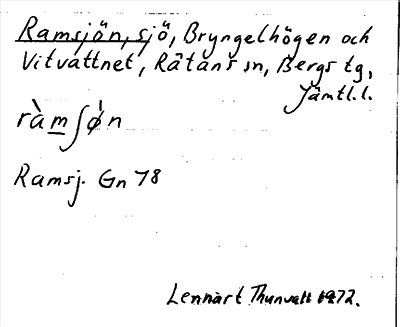 Ramsjön, sjö, Bryngelhögen och
Vitvattnet, Rätans sn, Bergs tg,
Jämtl.l.
ràm̲ʃǿn
Ramsj. Gn 78
Lennart Thunvall 1972.